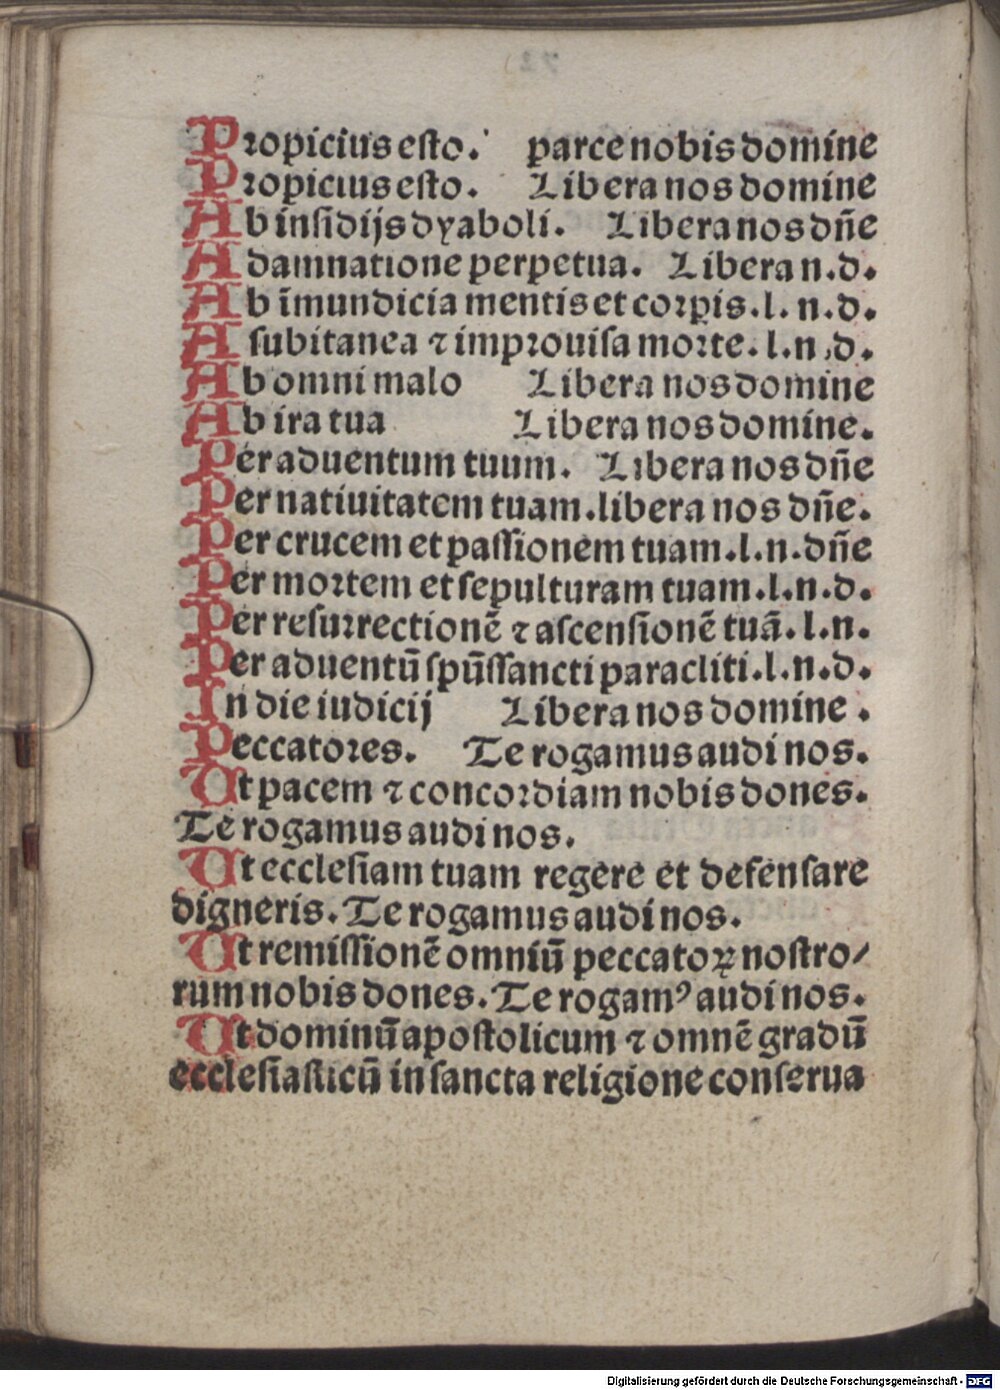 Propicius esto. parce nobis domine
Propicius esto. Libera nos domine
Ab insidijs dyaboli. Libera nos dñe
A damnatione perpetua. Libera n.d.
Ab īmundicia mentis et corꝑis.l. n.d.
A subitanea ⁊ improuisa morte. l.n.d.
Ab omni malo Libera nos domine
Ab ira tua Libera nos domine.
Per aduentum tuum. Libera nos dñe
Per natiuitatem tuam.libera nos dñe.
Per crucem et passionem tuam.l.n.dñe
Per mortem et sepulturam tuam.l.n.d.
Per resurrectionē ⁊ ascensionē tuā. l.n.
Per aduentū spūssancti paracliti.l.n.d.
In die iudicij Libera nos domine .
Peccatores. Te rogamus audi nos.
Ut pacem ⁊ concordiam nobis dones.
Te rogamus audi nos.
Ut ecclesiam tuam regere et defensare
digneris. Te rogamus audi nos.
Ut remissionē omniū peccatoꝝ nostro/
rum nobis dones. Te rogamꝰ audi nos.
Ut dominū apostolicum ⁊ omnē gradū
ecclesiasticū in sancta religione conserua
Digitalisierung gefördert durch die Deutsche Forschungsgemeinschaft - DFG